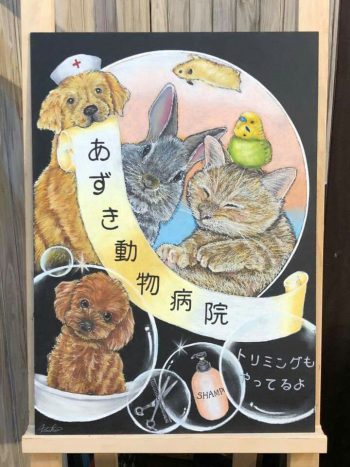 あずき動物病院
トリミングも
やってるよ
SHAMP